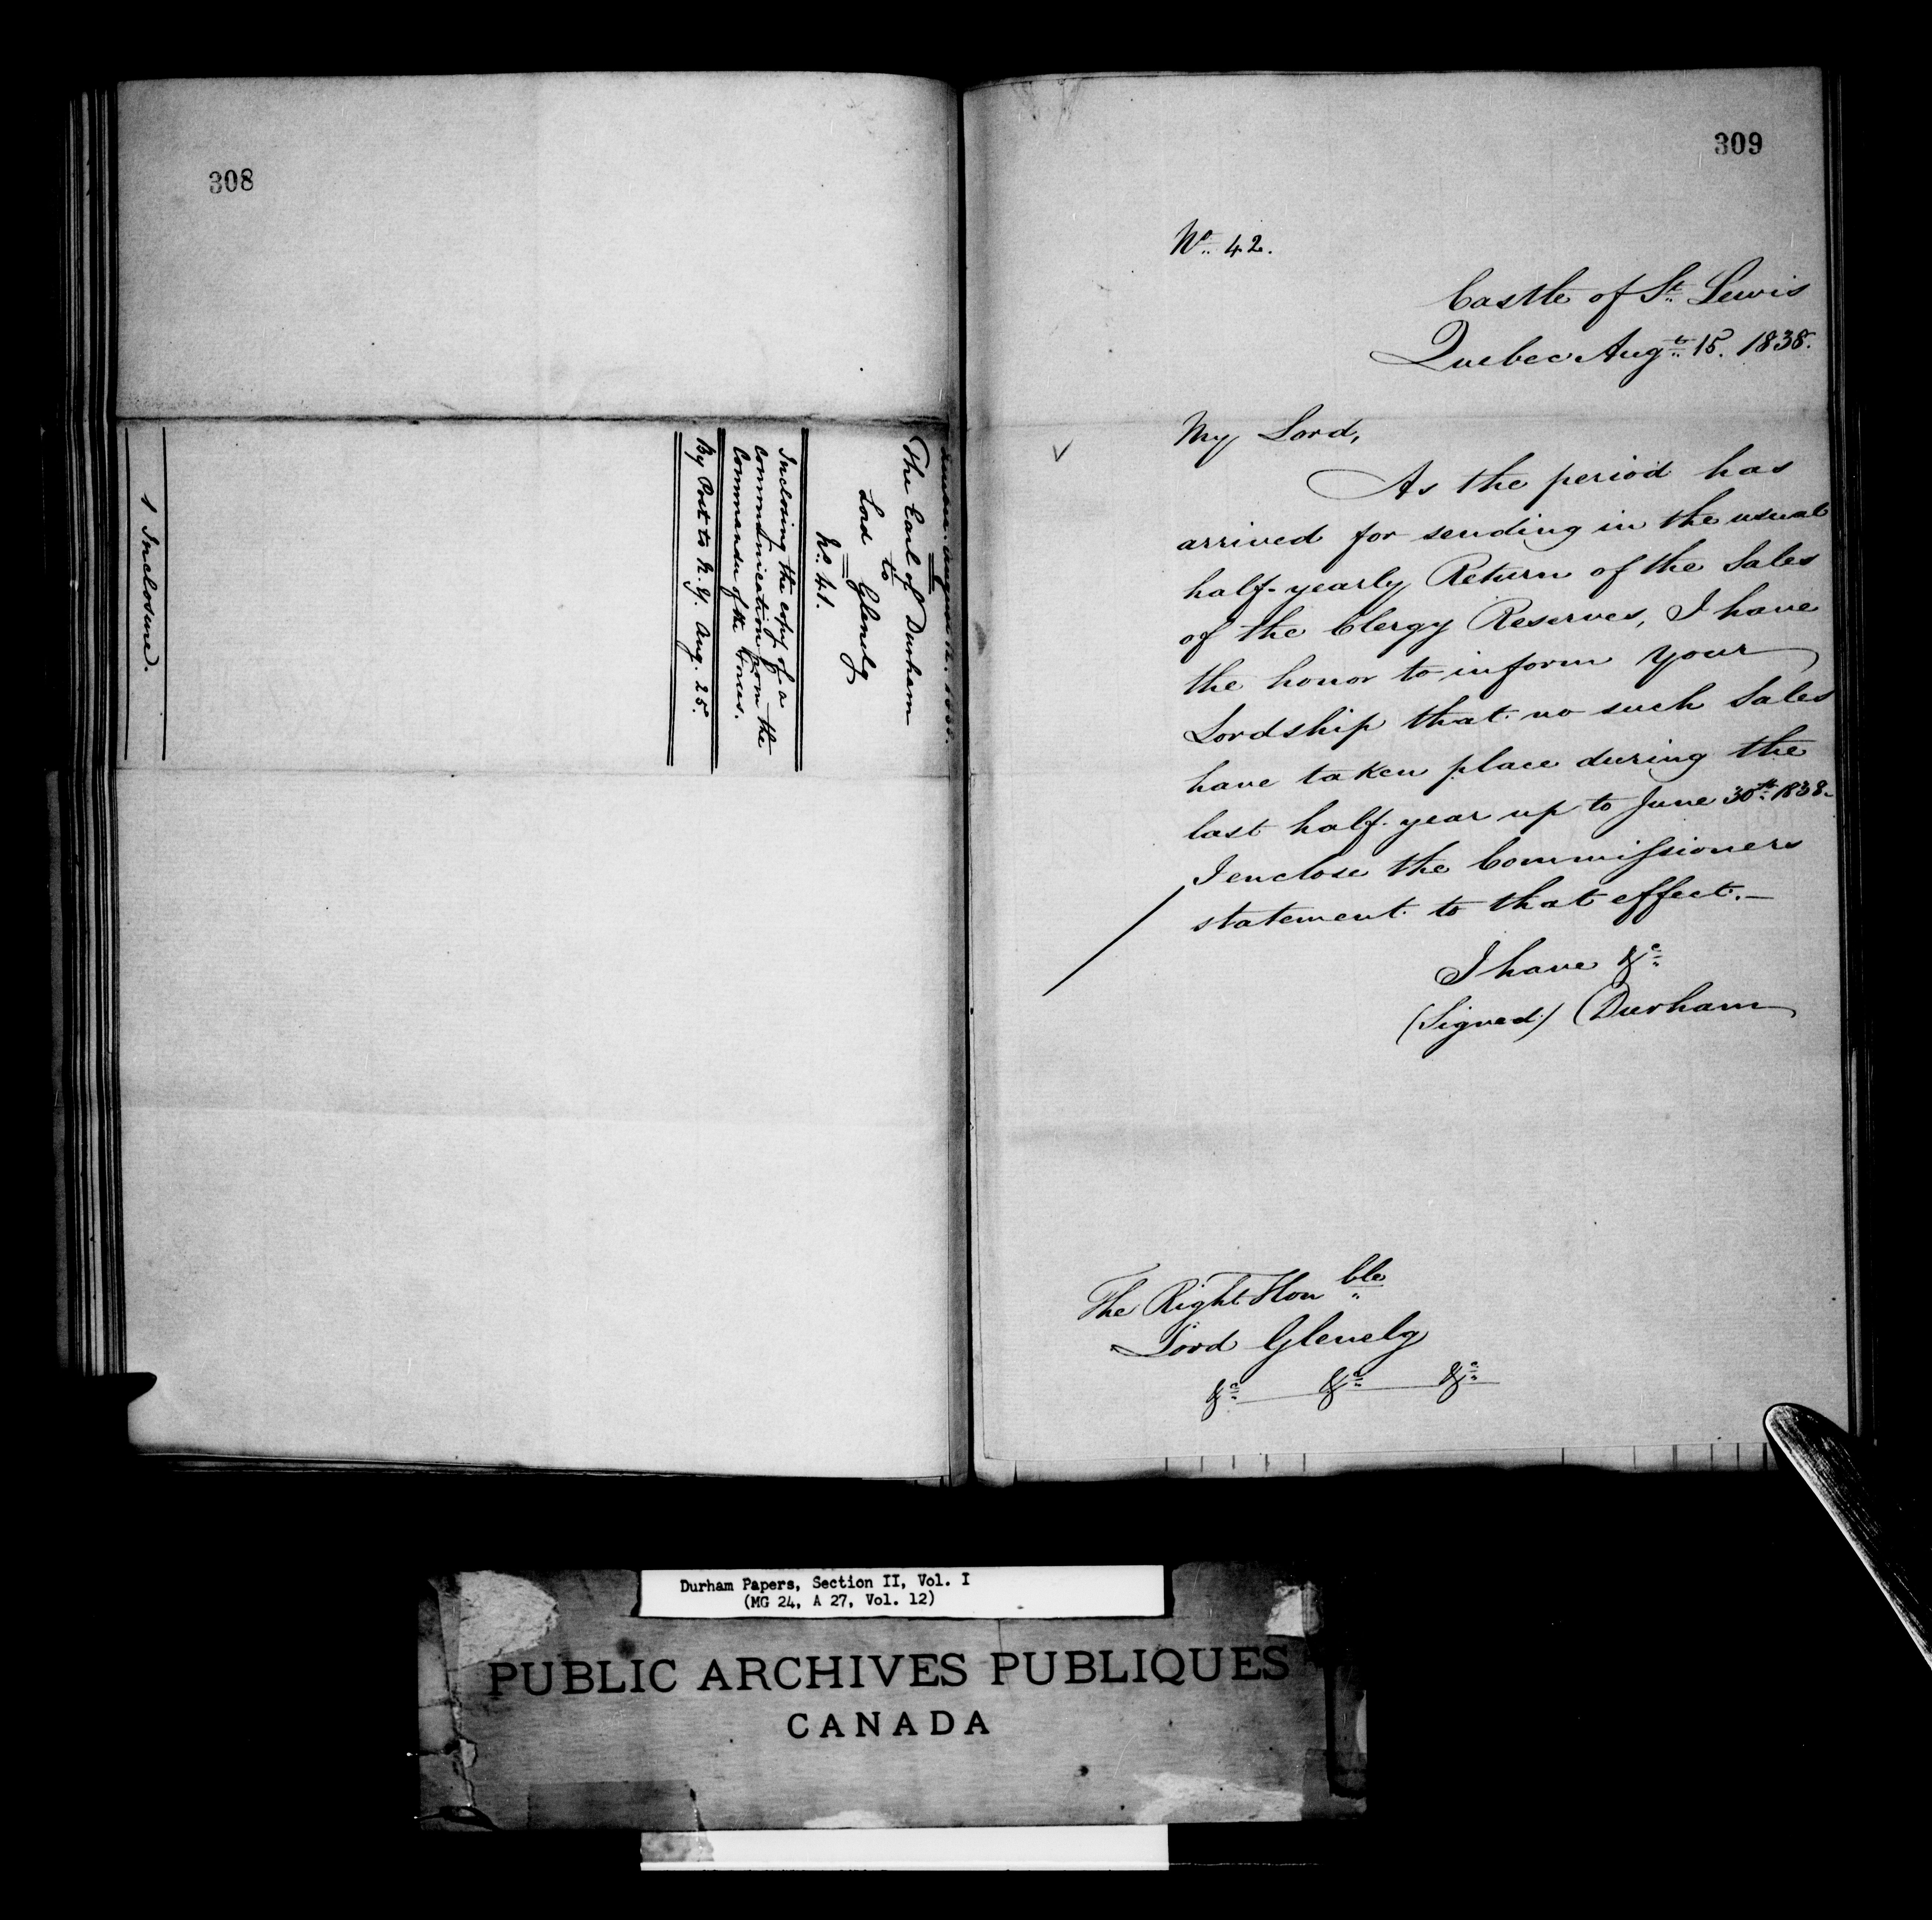 308
August 12. 1838.
The Earl of Durham
to
Lord Glenelg
No. 41.
Inclosing the copy of a
communication from the
Commander of the Forces.
By Post to N.Y. Aug. 25.
1 Inclosure.
309
No. 42.
Castle of St. Lewis
Quebec Augt. 15. 1838.
My Lord,
As the period has
arrived for sending in the usual
half-yearly Return of the Sales
of the Clergy Reserves, I have
the honor to inform your
Lordship that no such Sales
have taken place during the
last half-year up to June 30th. 1838.
I enclose the Commissioners
statement to that effect.—
I have &c.
(Signed) Durham
The Right Honble
Lord Glenelg
&c. &c. &c.
Durham Papers, Section II, Vol. I
(MG 24, A 27, Vol. 12)
PUBLIC ARCHIVES PUBLIQUES
CANADA